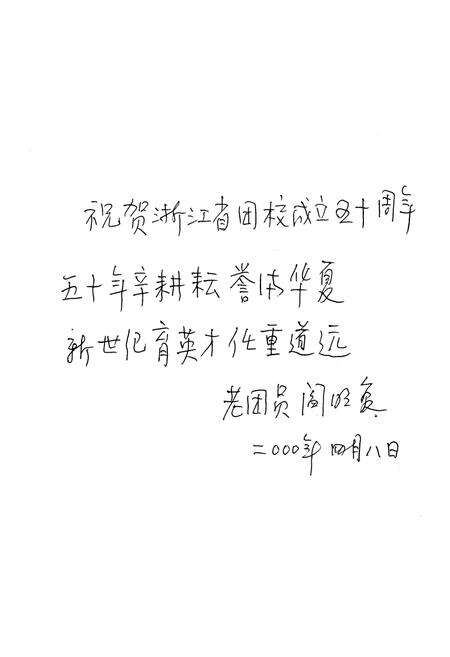 祝贺浙江省团校成立五十周年
五十年辛耕耘誉满华夏
新世纪育英才任重道远
老团员阎明复
二〇〇〇年四月八日